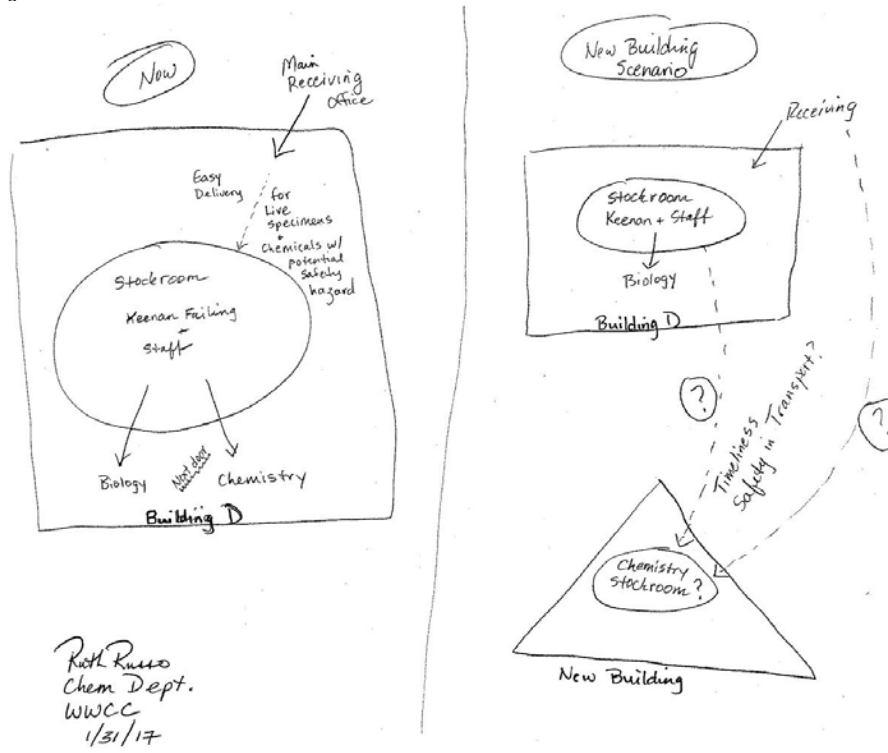 Now
Main
Receiving
office
Easy
Delivery
for
Live
specimens
+
Chemicals w/
potential
safety
hazard
Stockroom
Keenan Failing
+
Staff
Biology
Next door
Chemistry
Building D
Ruth Russo
Chem Dept.
WWCC
1/31/17
New Building
Scenario
Receiving
Stockroom
Keenan + Staff
Biology
Building D
?
Timeliness
Safety in Transport?
?
Chemistry
Stockroom?
New Building